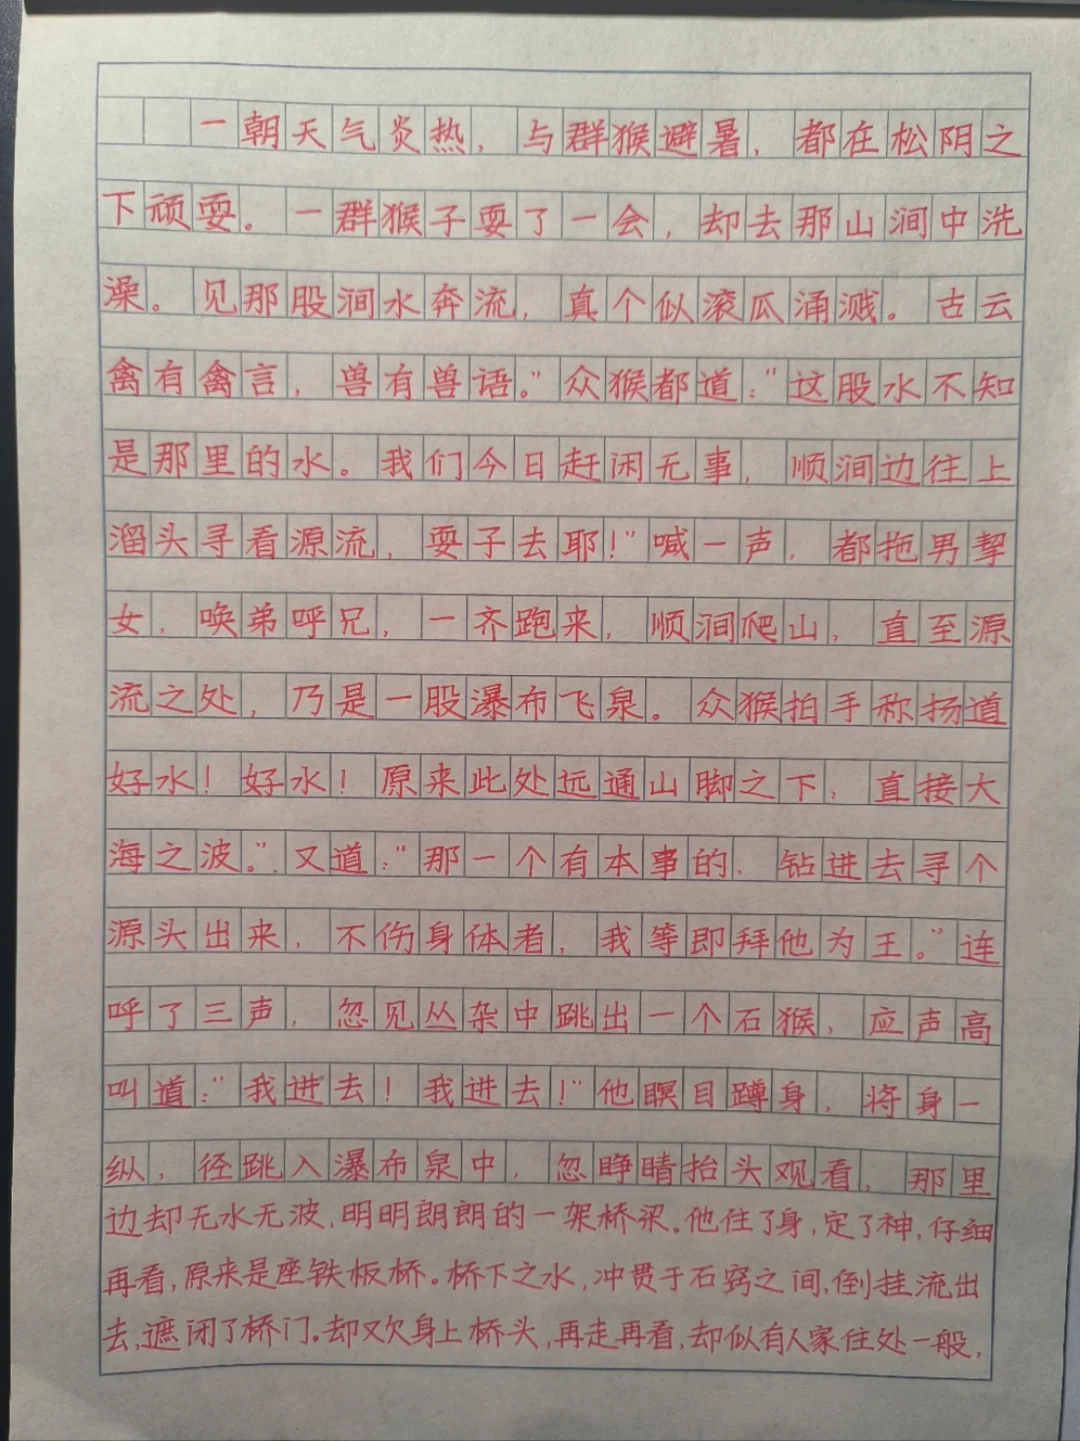 一朝天气炎热，与群猴避暑，都在松阴之
下顽耍。一群猴子耍了一会，却去那山涧中洗
澡。见那股涧水奔流，真个似滚瓜涌溅。古云
禽有禽言，兽有兽语。”众猴都道：“这股水不知
是那里的水。我们今日赶闲无事，顺涧边往上
溜头寻看源流，耍子去耶！”喊一声，都拖男挈
女，唤弟呼兄，一齐跑来，顺涧爬山，直至源
流之处，乃是一股瀑布飞泉。众猴拍手称扬道
好水！好水！原来此处远通山脚之下，直接大
海之波。”又道：“那一个有本事的，钻进去寻个
源头出来，不伤身体者，我等即拜他为王。”连
呼了三声，忽见丛杂中跳出一个石猴，应声高
叫道：“我进去！我进去！”他瞑目蹲身，将身一
纵，径跳入瀑布泉中，忽睁睛抬头观看，那里
边却无水无波，明明朗朗的一架桥梁。他住了身，定了神，仔细
再看，原来是座铁板桥。桥下之水，冲贯于石窍之间，倒挂流出
去，遮闭了桥门。却又欠身上桥头，再走再看，却似有人家住处一般，